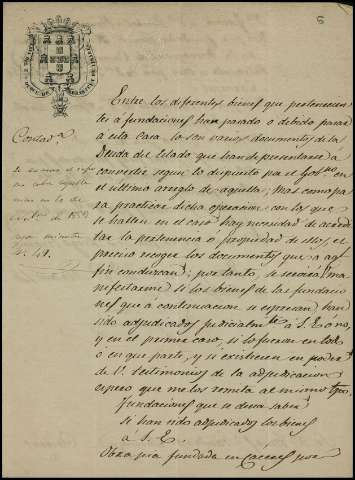 8
Contad.ª
Entre los diferentes bienes que pertenecien
tes a fundaciones han pasado o debido pasar
a esta Casa lo son varios documentos de la
Deuda del Estado que han de presentarse á
convertir segun lo dispuesto por el Gob.no en
el ultimo arreglo de aquella; Mas como pa
ra practicar dicha operacion con los que
se hallen en el caso hay necesidad de acredi
tar la pertenencia o propiedad de ellos, es
preciso recoger los documentos que a aq.l
fin conduzcan; por tanto, se servirá V. ma
nifestarme si los bienes de las fundacio
nes que á continuacion se expresan han
sido adjudicados judicialm.te á S. E. ó no,
y en el primer caso, si lo fueron en todo
ó en que parte, y si existiesen en poder
de V. testimonios de la adjudicacion
espero que me los remita al mismo tpo.
Fundaciones que se desea saber
si han sido adjudicados los bienes
á S. E.
Obra pia fundada en Caceres por